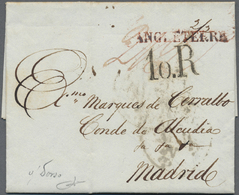 ANGLETERRE
10.R
Exmo Marques de Cerralbo
Conde de Alcudia
Madrid